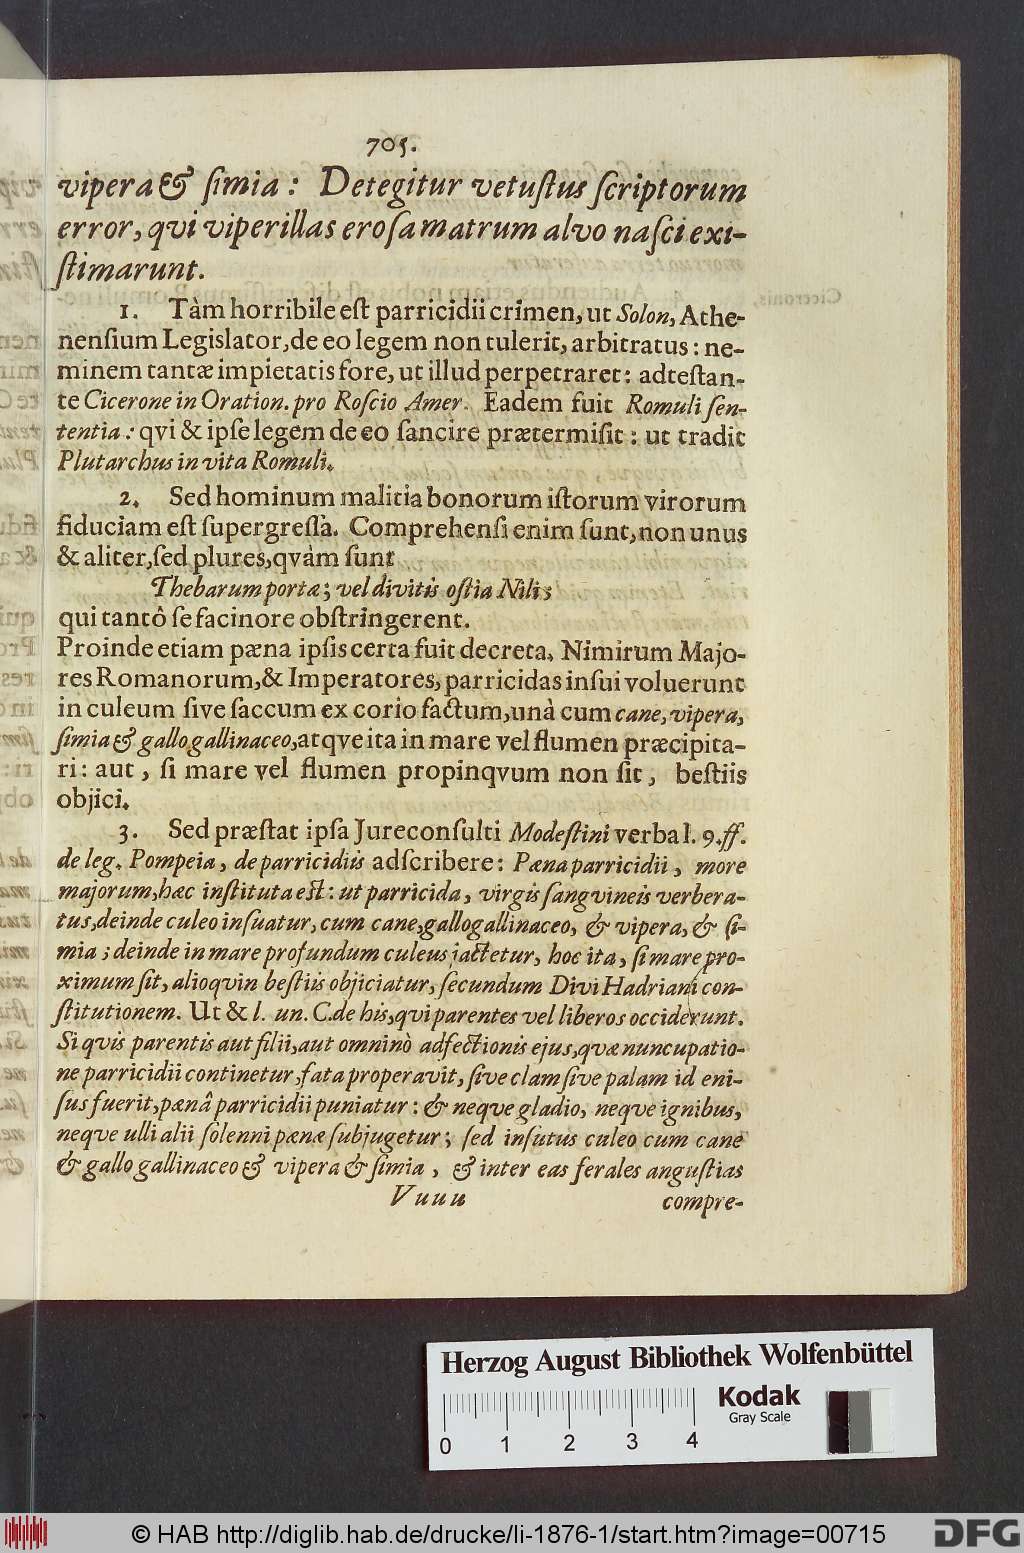 705.
vipera & ſimia: Detegitur vetuſtus ſcriptorum
error, qvi viperillas eroſa matrum alvo naſci exi-
ſtimarunt.
1. Tàm horribile eſt parricidii crimen, ut Solon, Athe-
nenſium Legislator, de eo legem non tulerit, arbitratus: ne-
minem tantæ impietatis fore, ut illud perpetraret: adteſtan-
te Cicerone in Oration. pro Roſcio Amer. Eadem fuit Romuli ſen-
tentia: qvi & ipſe legem de eo ſancire prætermiſit: ut tradit
Plutarchus in vita Romuli.
2. Sed hominum malitia bonorum iſtorum virorum
fiduciam eſt ſupergreſſa. Comprehenſi enim ſunt, non unus
& aliter, ſed plures, qvàm ſunt
Thebarum portæ; vel divitis oſtia Nili;
qui tantô ſe facinore obſtringerent.
Proinde etiam pæna ipſis certa fuit decreta. Nimirum Majo-
res Romanorum, & Imperatores, parricidas inſui voluerunt
in culeum ſive ſaccum ex corio factum, unà cum cane, vipera,
ſimia & gallo gallinaceo, atqve ita in mare vel flumen præcipita-
ri: aut, ſi mare vel flumen propinqvum non ſit, beſtiis
objici.
3. Sed præſtat ipſa Jureconſulti Modeſtini verba l. 9. ff.
de leg. Pompeia, de parricidiis adſcribere: Pæna parricidii, more
majorum, hæc inſtituta eſt: ut parricida, virgis ſangvineis verbera-
tus, deinde culeo inſuatur, cum cane, gallo gallinaceo, & vipera, & ſi-
mia; deinde in mare profundum culeus jactetur, hoc ita, ſi mare pro-
ximum ſit, alioqvin beſtiis objiciatur, ſecundum Divi Hadriani con-
ſtitutionem. Ut & l. un. C. de his, qvi parentes vel liberos occiderunt.
Si qvis parentis aut filii, aut omninò adfectionis ejus, qvæ nuncupatio-
ne parricidii continetur, fata properavit, ſive clam ſive palam id eni-
ſus fuerit, pænâ parricidii puniatur: & neque gladio, neque ignibus,
neque ulli alii ſolenni pænæ ſubjugetur; ſed inſutus culeo cum cane
& gallo gallinaceo & vipera & ſimia, & inter eas ferales anguſtias
Vuuu compre-
Herzog August Bibliothek Wolfenbüttel
Kodak
Gray Scale
0 1 2 3 4
© HAB http://diglib.hab.de/drucke/li-1876-1/start.htm?image=00715
DFG